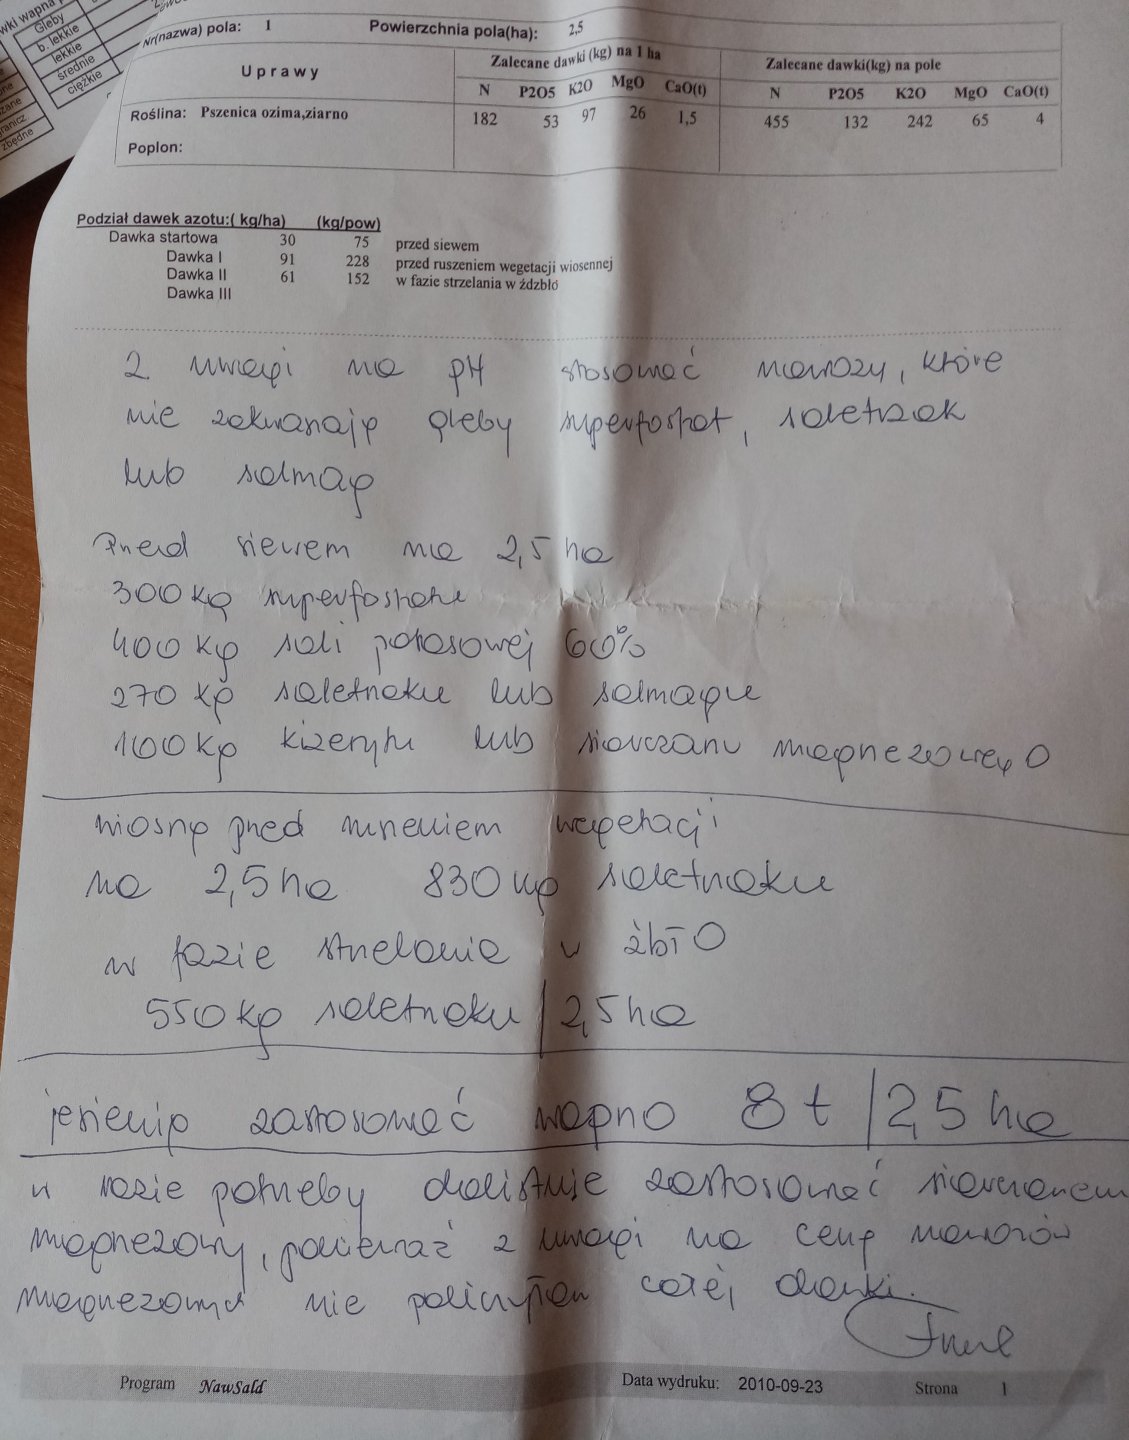 wki wapna
Gleby
b. lekkie
lekkie
średnie
ciężkie
zbędne
Nr(nazwa) pola: 1 Powierzchnia pola(ha): 2,5
Uprawy Zalecane dawki (kg) na 1 ha Zalecane dawki(kg) na pole
N P2O5 K2O MgO CaO(t) N P2O5 K2O MgO CaO(t)
Roślina: Pszenica ozima,ziarno 182 53 97 26 1,5 455 132 242 65 4
Poplon:
Podział dawek azotu:( kg/ha) (kg/pow)
Dawka startowa 30 75 przed siewem
Dawka I 91 228 przed ruszeniem wegetacji wiosennej
Dawka II 61 152 w fazie strzelania w źdźbło
Dawka III
Z uwagi na pH stosować nawozy, które
nie zakwaszają gleby superfosfat, saletrzak
lub salmag
Przed siewem na 2,5 ha
300 kg superfosfatu
400 kg soli potasowej 60%
270 kg saletrzaku lub salmagu
100 kg kizerytu lub siarczanu magnezowego
wiosną przed ruszeniem wegetacji
na 2,5 ha 830 kg saletrzaku
w fazie strzelania w źbło
550 kg saletrzaku / 2,5 ha
jesienią zastosować wapno 8 t / 2,5 ha
w razie potrzeby dolistnie zastosować siarczanem
magnezowy, ponieważ z uwagi na cenę nawozów
magnezowych nie policzyłam całej dawki.
Program NawSald Data wydruku: 2010-09-23 Strona 1